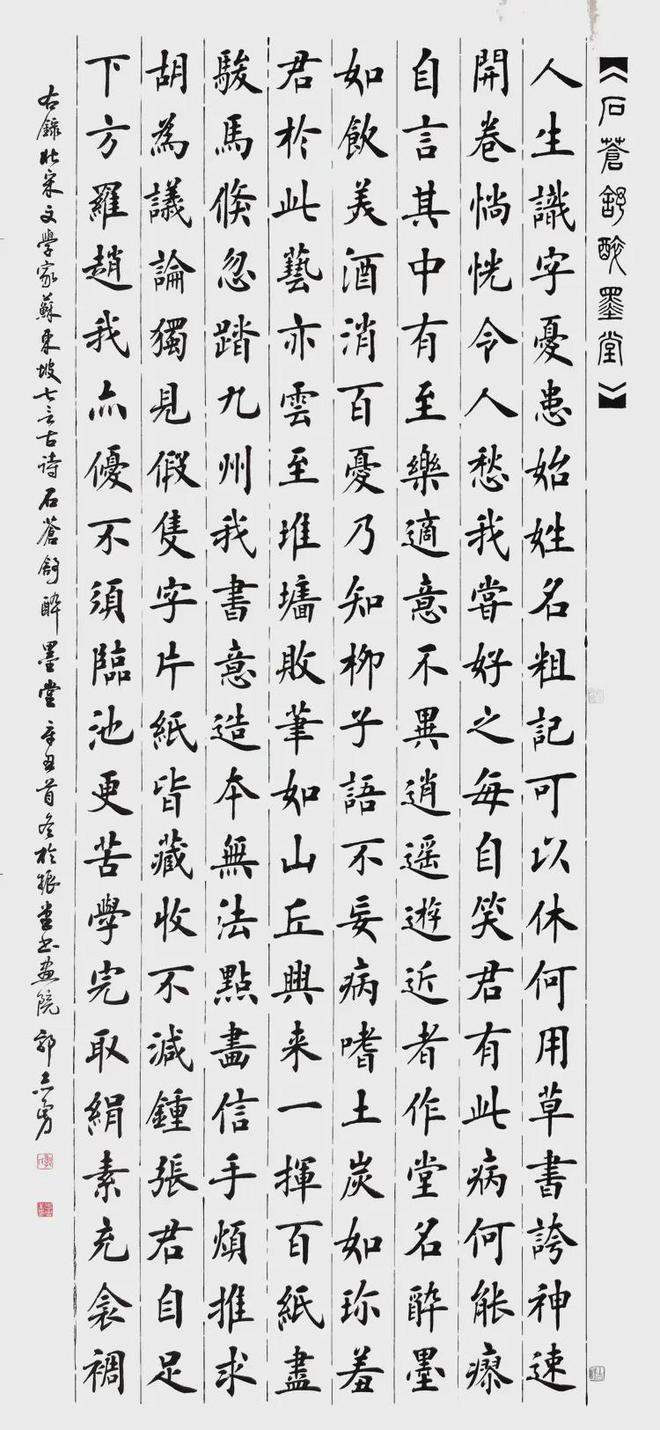 【《石蒼舒醉墨堂》】
人生識字憂患始姓名粗記可以休何用草書誇神速
開卷惝恍令人愁我嘗好之每自笑君有此病何能瘳
自言其中有至樂適意不異逍遥遊近者作堂名醉墨
如飲美酒消百憂乃知柳子語不妄病嗜土炭如珍羞
君於此藝亦雲至堆墻敗筆如山丘興来一揮百紙盡
駿馬倐忽踏九州我書意造本無法點畫信手煩推求
胡為議論獨見假隻字片紙皆藏收不減鍾張君自足
下方羅趙我亦優不須臨池更苦學完取絹素充衾裯
右錄北宋文學家蘇東坡七言古诗石蒼舒醉墨堂辛丑首冬於振堂书画院郭志勇